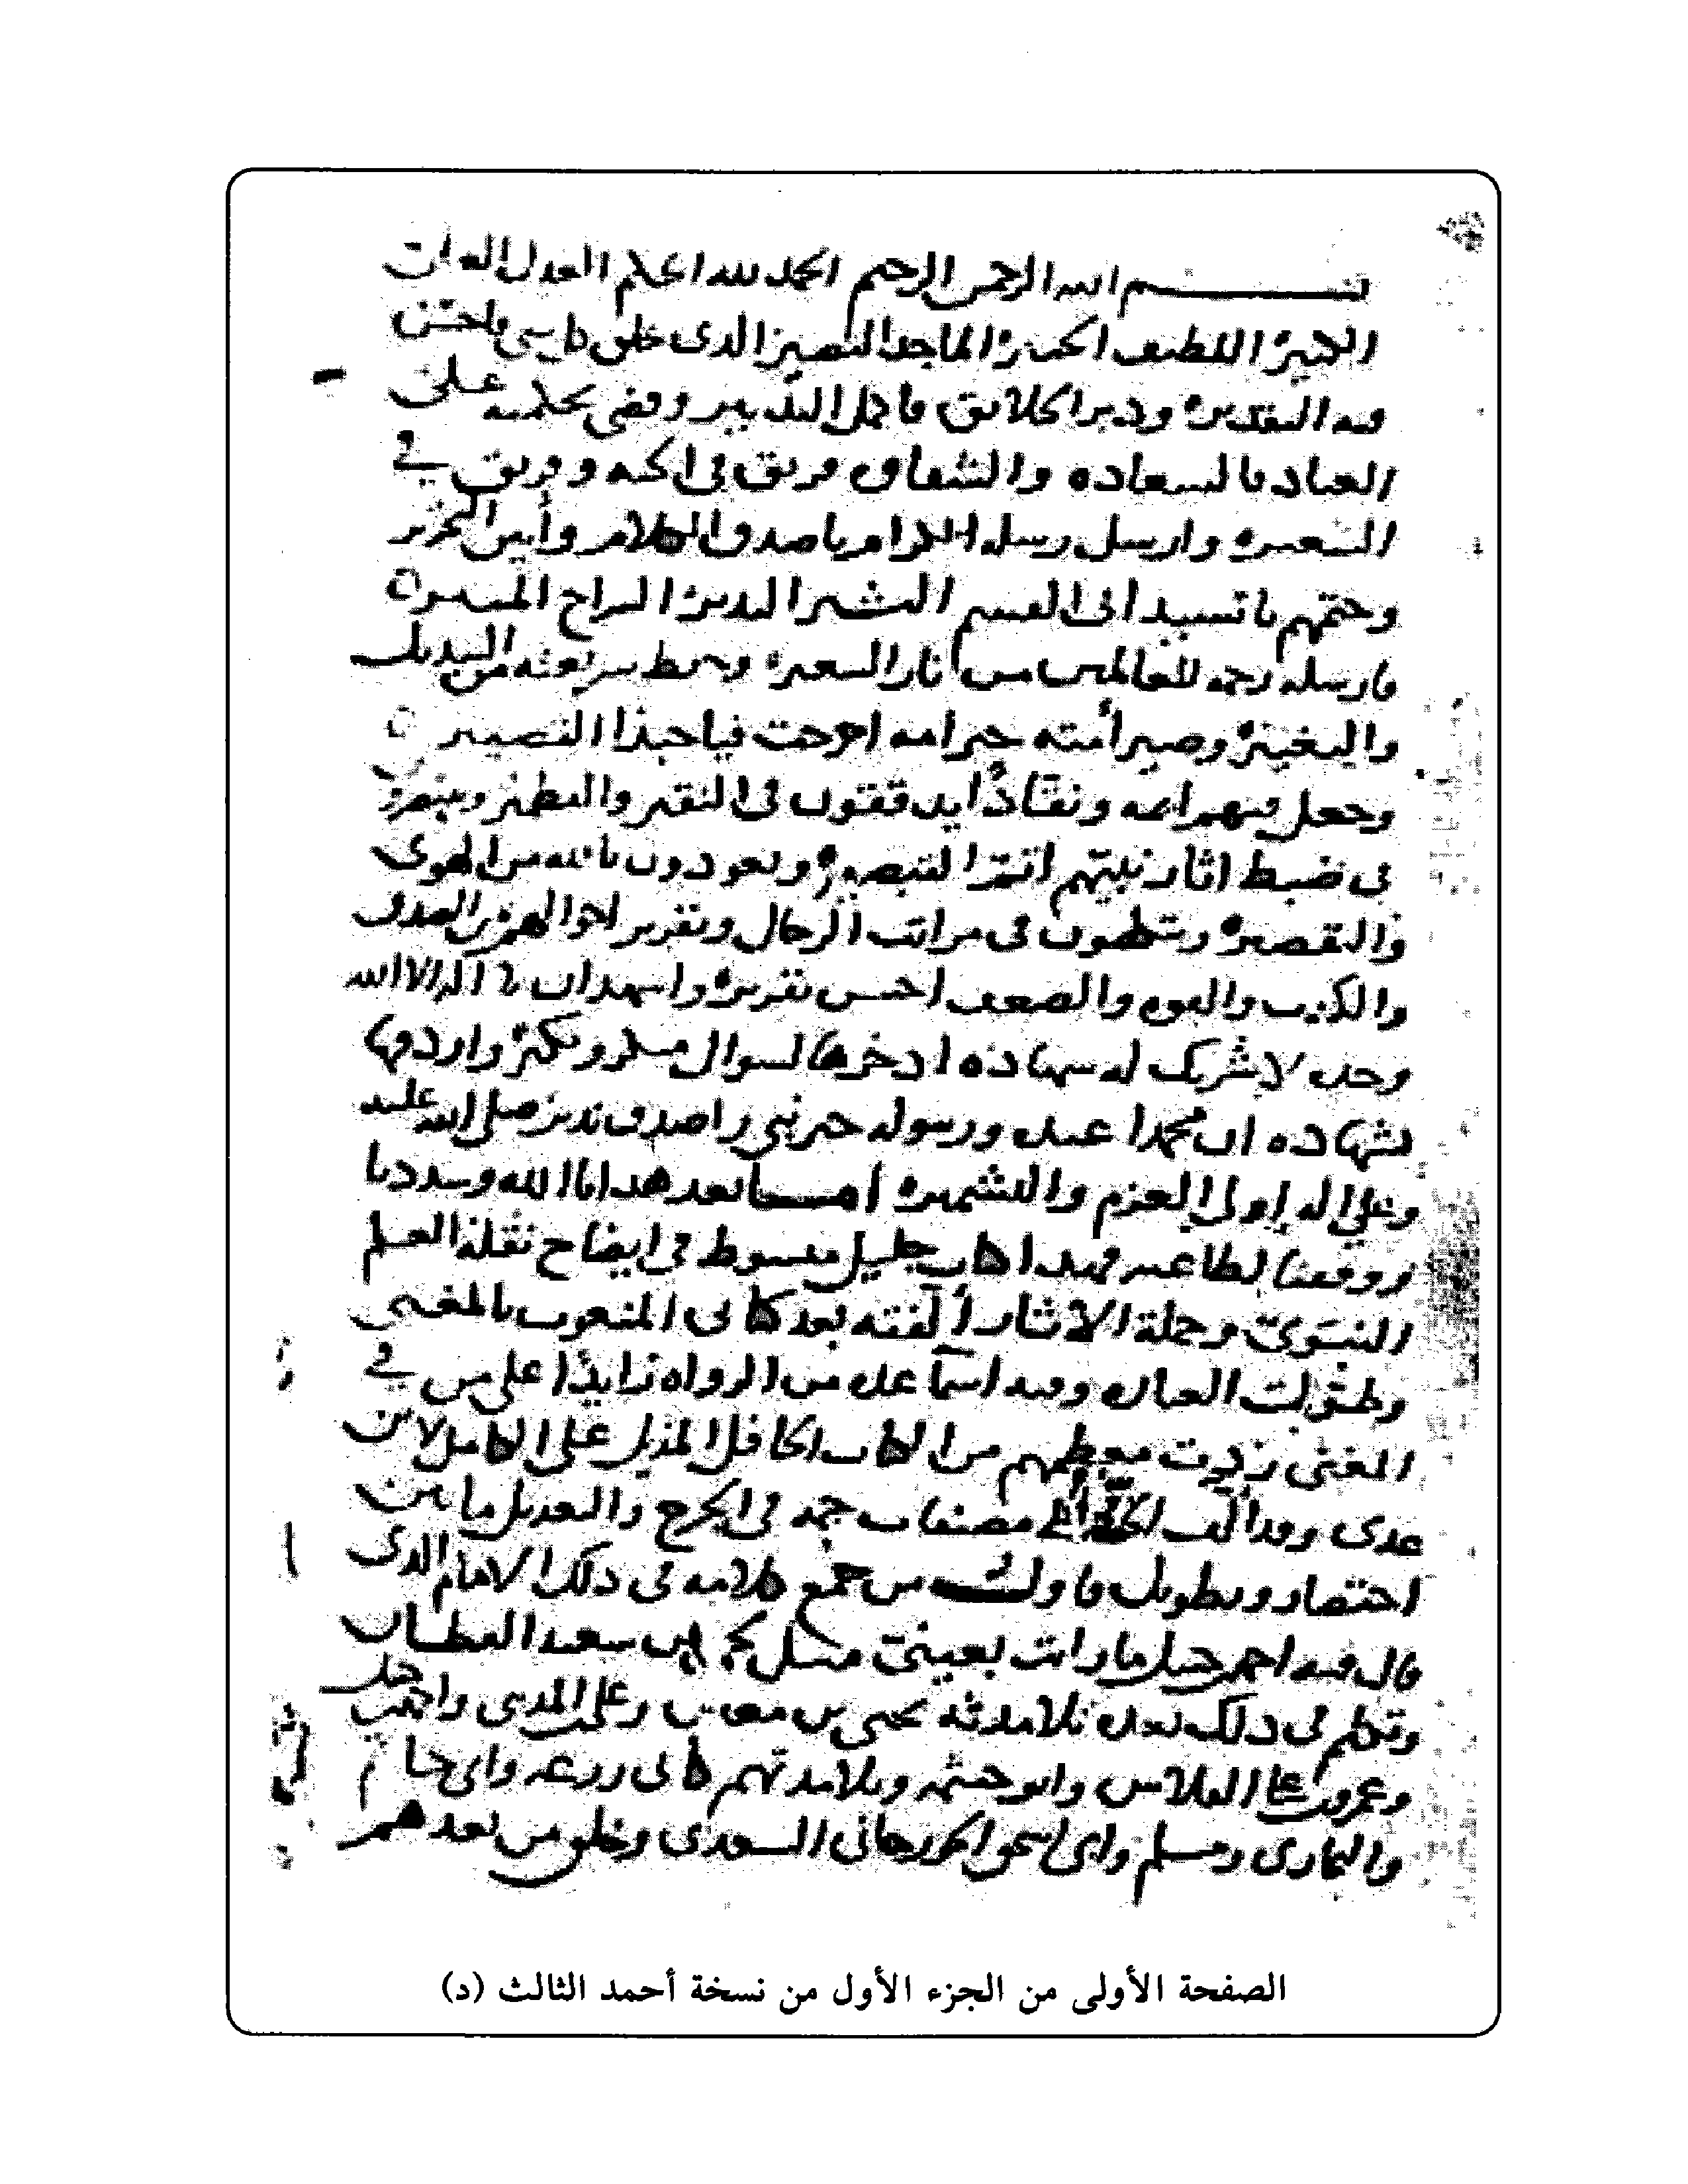 بسم الله الرحمن الرحيم الحمد لله الحكم العدل العلى
الكبير اللطيف الخبير الماجد البصير الذى خلق كل شى فاحسن
فيه التقدير ودبر الخلائق فاكمل التدبير وقضى بحكمته على
العباد بالسعاده والشقاوه فريق فى الجنه وفريق في
السعير وارسل رسله الكرام باصدق الكلام وأبين التحرير
وختمهم بالسيد ابى القسم البشير النذير السراج المنير
فارسله رحمه للعالمين من نار السعير وحفظ شريعته من التبديل
والتغيير وصير أمته خير امه اخرجت فيا حبذا التصيير
وجعل فيهم ايمه ونقاداً يدققون فى النقير والقطمير ويتبصرون
فى ضبط اثار نبيهم اتم التبصير ويعوذون بالله من الهوى
والتقصير ويتكلمون فى مراتب الرجال وتقرير احوالهم من الصدق
والكذب والقوه والضعف احسن تقرير واشهد ان لا اله الا الله
وحده لا شريك له شهاده ادخرها لسوال منكر ونكير واردفها
بشهاده ان محمدا عبده ورسوله خير نبى واصدق نذير صلى الله عليه
وعلى اله اولى العزم والتشمير اما بعد هدانا الله وسددنا
ووفقنا لطاعته فهذا كتاب جليل مبسوط فى ايضاح نقلة العلم
النبوى وحملة الاثار ألفته بعد كتابى المنعوت بالمغنى
وطولت العباره وفيه اسما عده من الرواه زايداً على من في
المغنى زدت معظمهم من الكتاب الحافل المذيل على الكامل لابن
عدى وقد ألف الحفاظ مصنفات جمه فى الجرح والتعديل ما بين
اختصار وتطويل فاول من جمع كلامه فى ذلك الامام الذى
قال فيه احمد بن حنبل ما رايت بعينى مثل يحيى بن سعيد القطان
وتكلم فى ذلك بعده تلامذته يحيى بن معين وعلى بن المدينى واحمد بن حنبل
وعمرو بن على الفلاس وابو خيثمه وتلامذتهم كابى زرعه وابى حاتم
والبخارى ومسلم وابى اسحق الجوزجانى السعدى وخلق من بعدهم
الصفحة الأولى من الجزء الأول من نسخة أحمد الثالث (د)